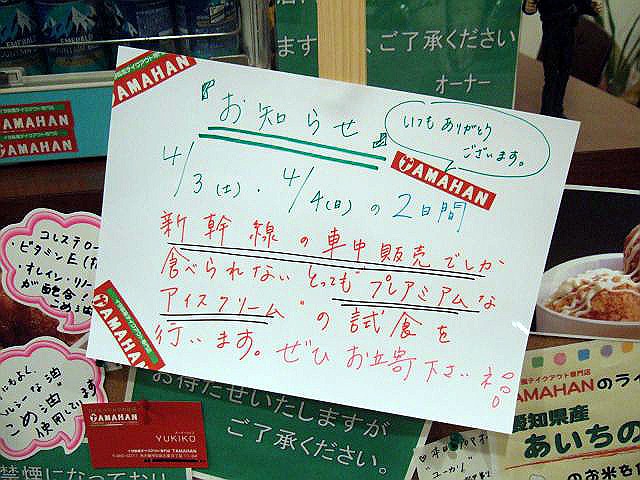 ます
、ご了承ください
オーナー
TAMAHAN
TAMAHAN
TAMAHAN
『お知らせ』
いつもありがとう
ございます。
TAMAHAN
4/3(土)・4/4(日)の2日間
新幹線の車中販売でしか
食べられないとっても"プレミアムな
アイスクリーム"の試食を
行います。ぜひお立寄下さい
TAMAHAN
コレステロー
・ビタミンE(
・オレイン・リノ
が配合!
こめ油
こめ油
使用しています
TAMAHAN
YUKIKO
TAMAHAN
お待たせいたしますが
ご了承ください。
禁煙になっており
TAMAHANのライ
愛知県産
あいちの
のお米を